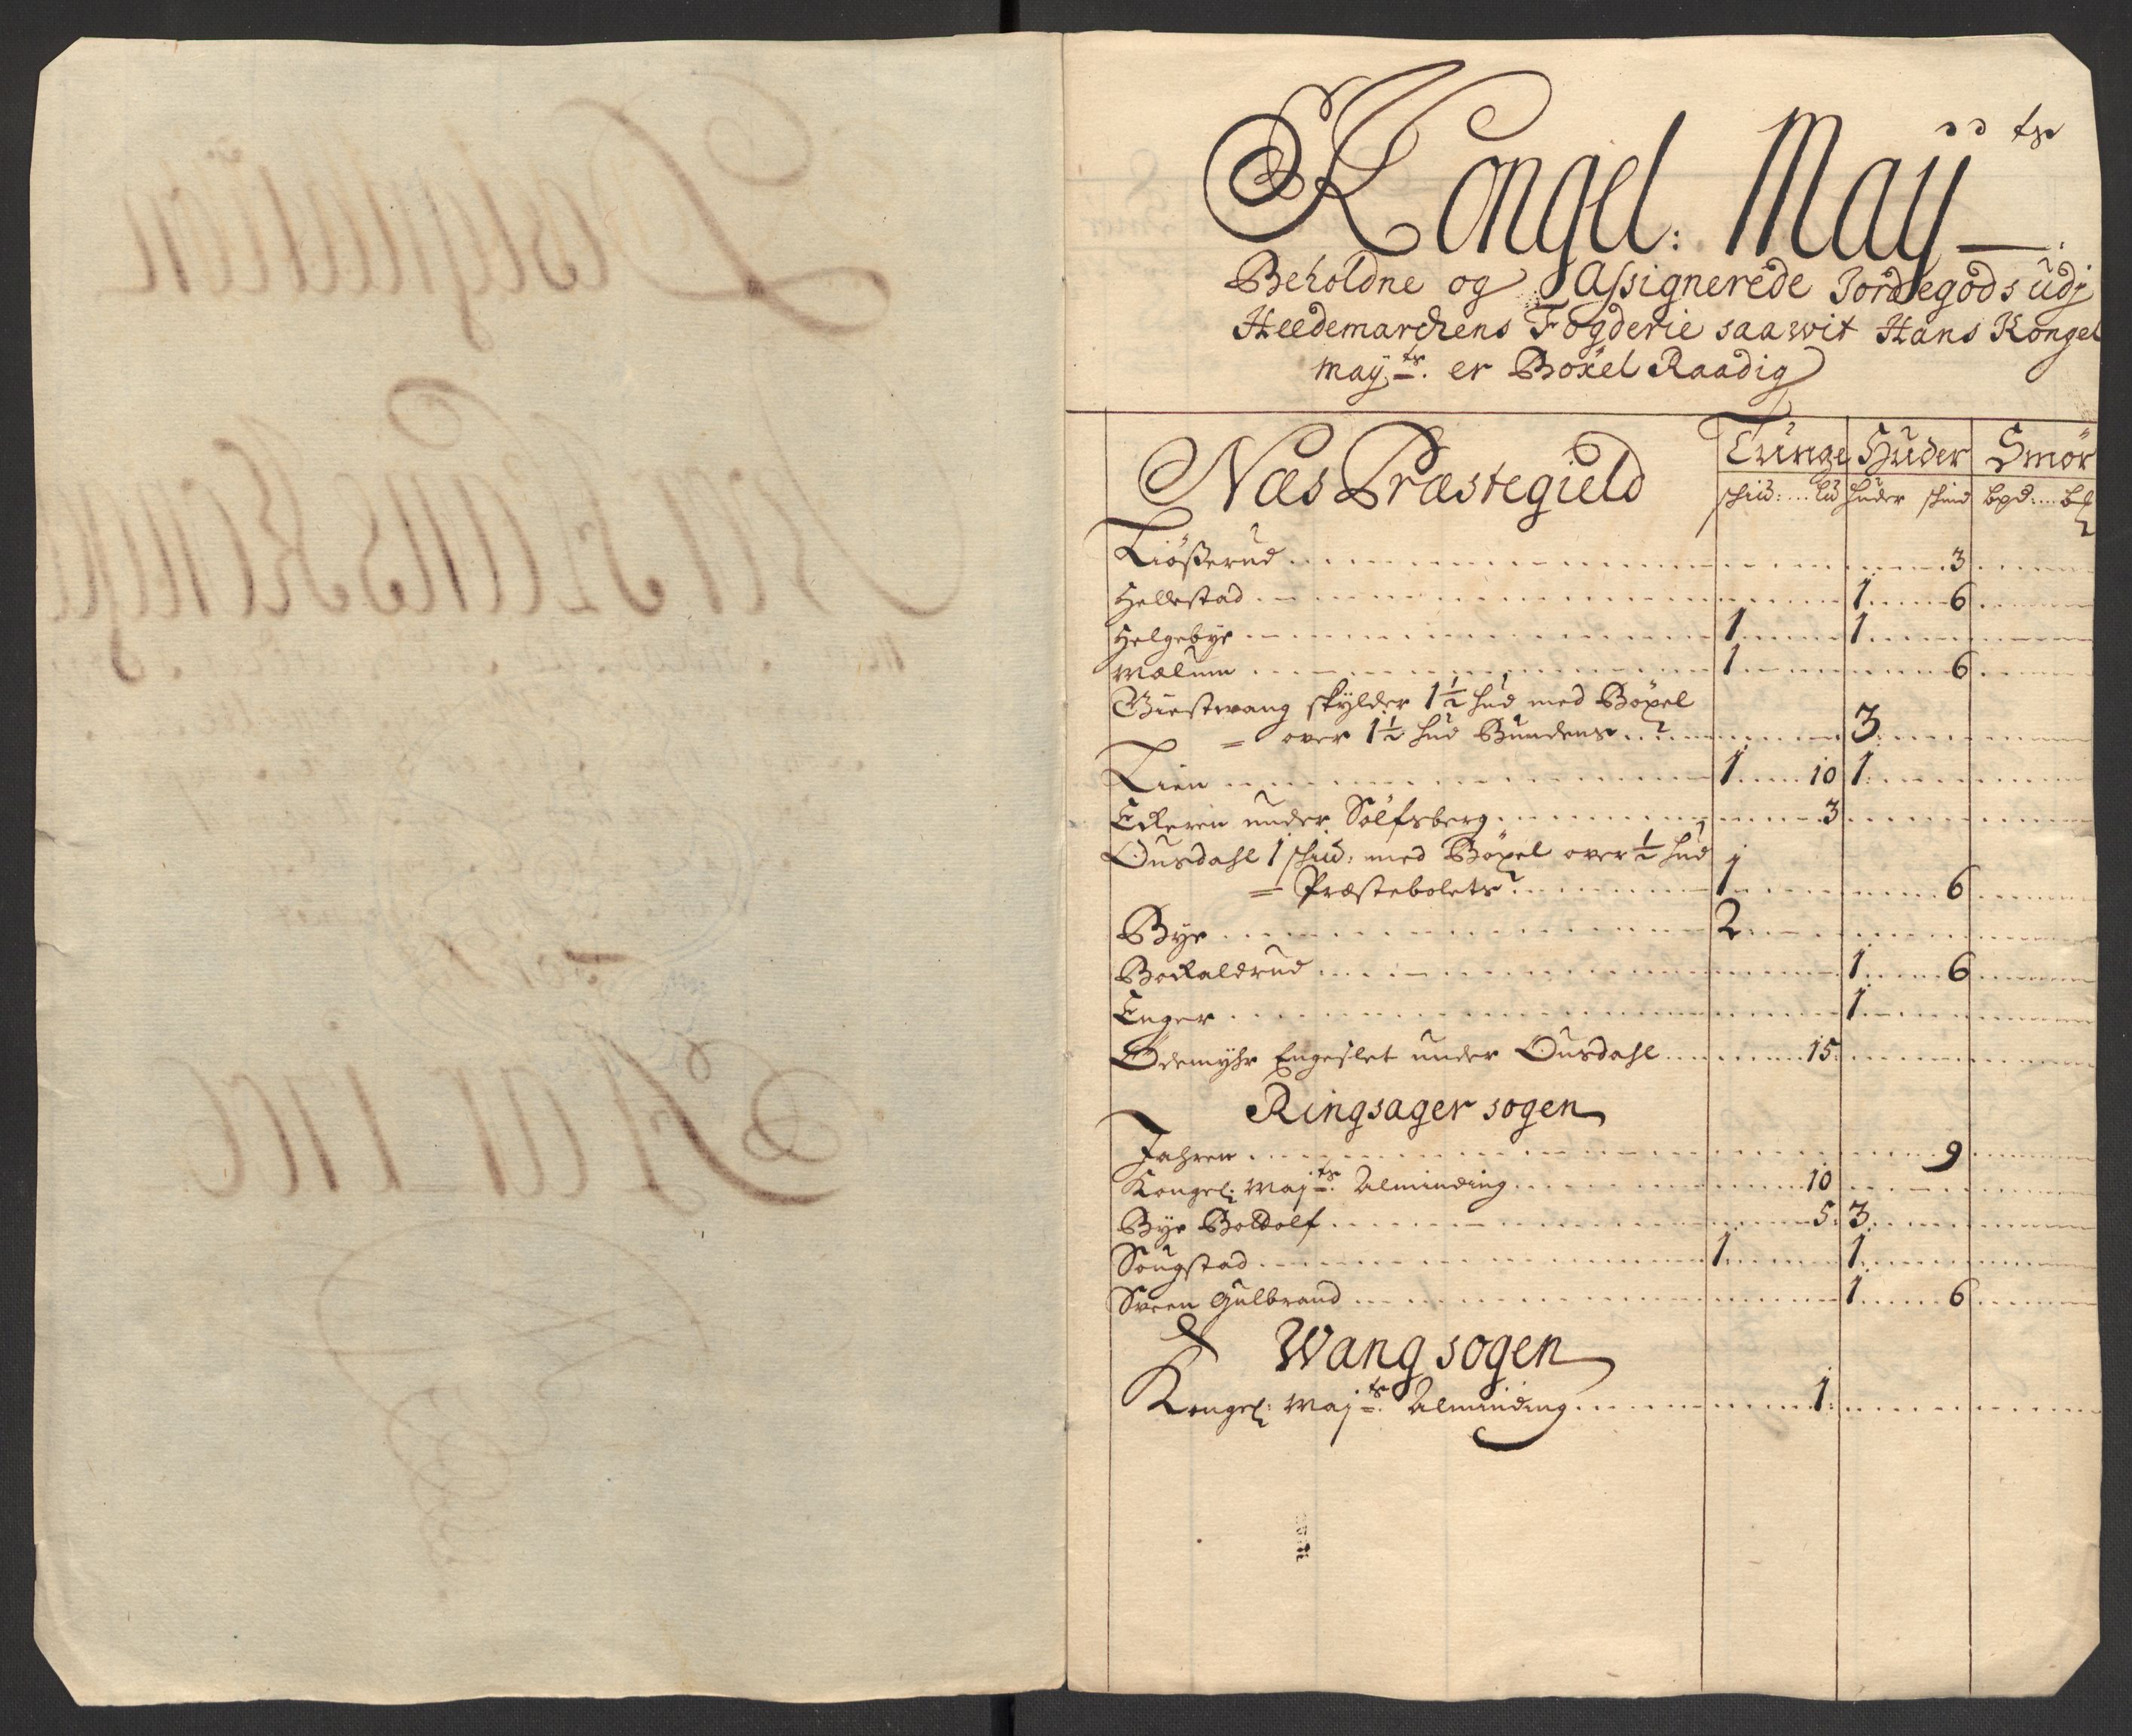 Kongel: May ts
Beholdne og Assignerede Jordegods udj
Heedemarckens Fogderie saawit Hans Kongel
may ts. er Böxel Raadig
Næs Præstegield Tunge Huder Smör
schiu: ... Lu huder schind bpd: ... bl
Tiößerud 3
Hellestad 1 6
Helgebye 1 1
Walum 1 6
Giestwang skylder 1½ hud med Böxel
= over 1½ hud Bundens 3
Lien 1 10 1
Eckeren under Sölfsberg 3
Ousdahl 1 schiu: med Böxel over ½ hud
= Præstebolets 1 6
Bye 2
Backalerud 1 6
Enger 1
Ödemyhr Engeslet under Ousdahl 15
Ringsager sogen
Jahren 9
Kongel: May ts. Alminding 10
Bye Boldolf 5 3
Sougstad 1 1
Sveen Gulbrand 1 6
Wang sogen
Kongel: May ts. Alminding 1